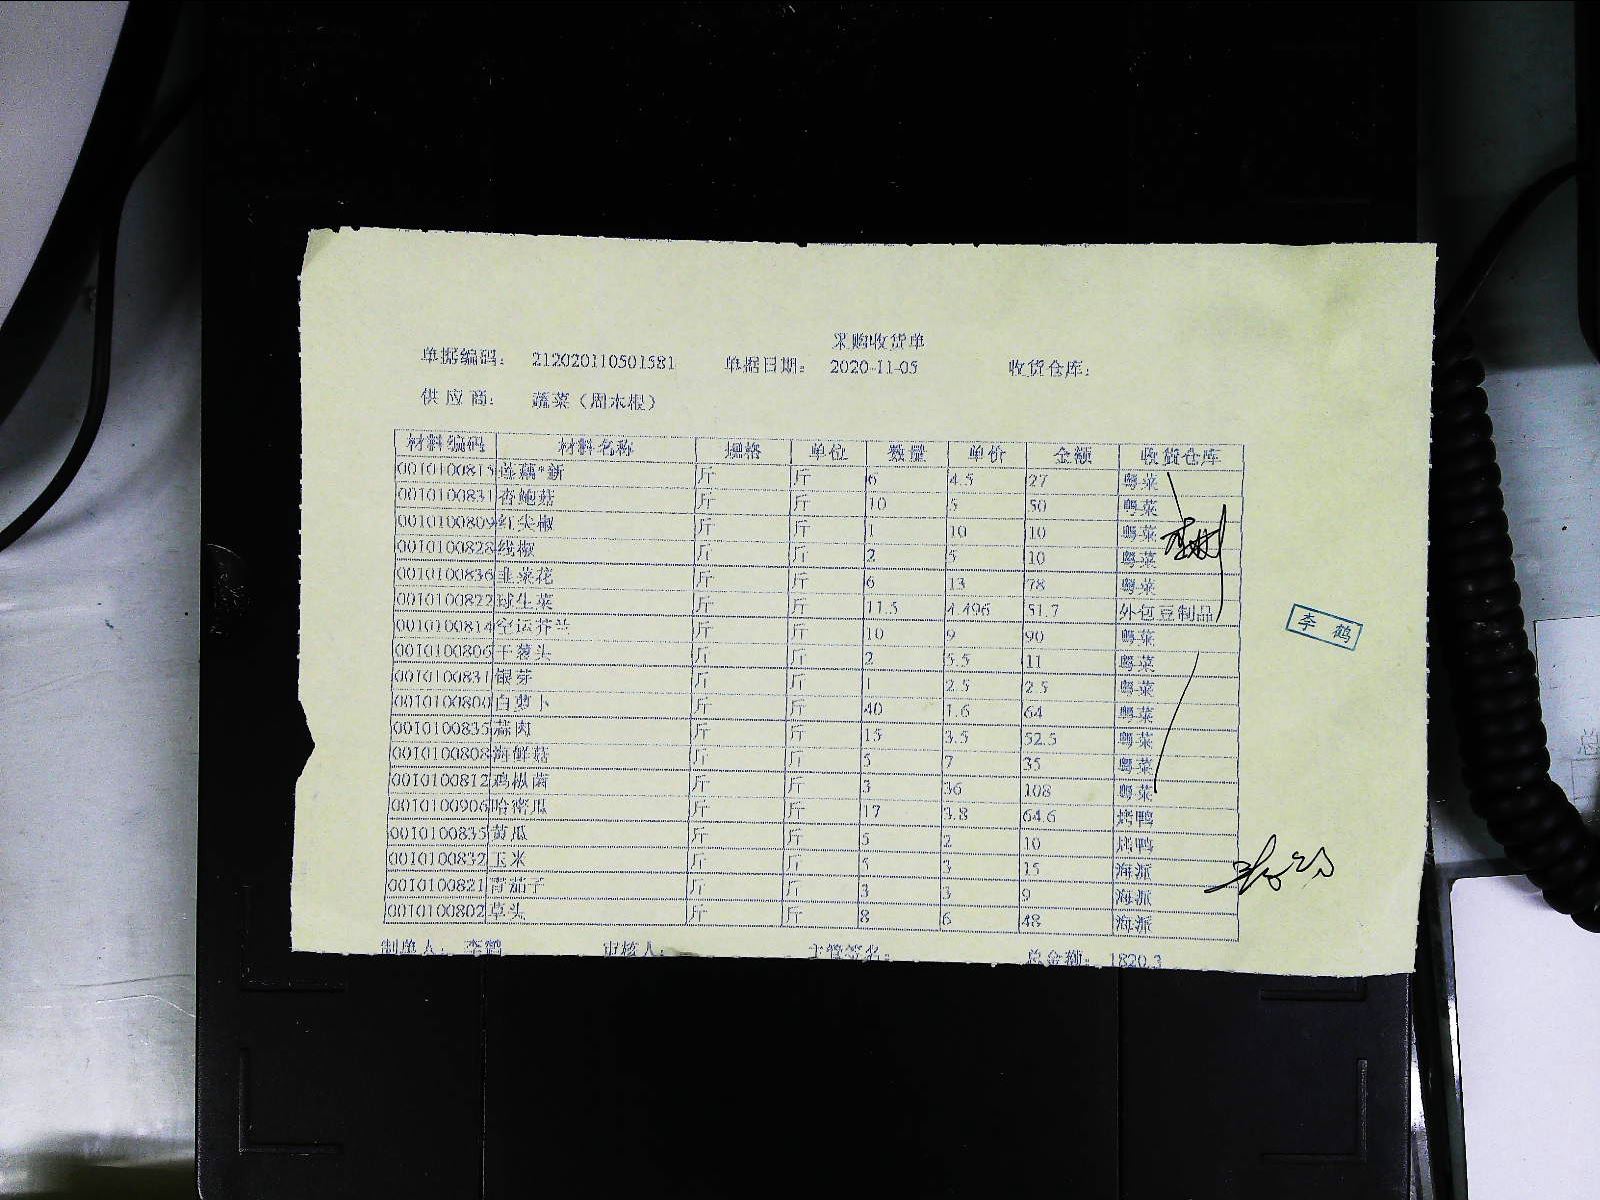 采购收货单
单据编码： 212020110501581 单据日期： 2020-11-05 收货仓库：
供应商： 蔬菜（周木根）
材料编码 材料名称 规格 单位 数量 单价 金额 收货仓库
0010100815 莲藕*新 斤 斤 6 4.5 27 粤菜
0010100831 杏鲍菇 斤 斤 10 5 50 粤菜
0010100809 红尖椒 斤 斤 1 10 10 粤菜
0010100828 线椒 斤 斤 2 5 10 粤菜
0010100836 韭菜花 斤 斤 6 13 78 粤菜
0010100822 球生菜 斤 斤 11.5 4.496 51.7 外包豆制品
0010100814 空运芥兰 斤 斤 10 9 90 粤菜
0010100806 干葱头 斤 斤 2 5.5 11 粤菜
0010100831 银芽 斤 斤 1 2.5 2.5 粤菜
0010100800 白萝卜 斤 斤 40 1.6 64 粤菜
0010100835 蒜肉 斤 斤 15 3.5 52.5 粤菜
0010100808 海鲜菇 斤 斤 5 7 35 粤菜
0010100812 鸡枞菌 斤 斤 3 36 108 粤菜
0010100906 哈密瓜 斤 斤 17 3.8 64.6 烤鸭
0010100835 黄瓜 斤 斤 5 2 10 烤鸭
0010100832 玉米 斤 斤 5 3 15 海派
0010100821 青茄子 斤 斤 3 3 9 海派
0010100802 草头 斤 斤 8 6 48 海派
制单人： 李鹤 审核人： 主管签名： 总金额： 1820.3
李鹤